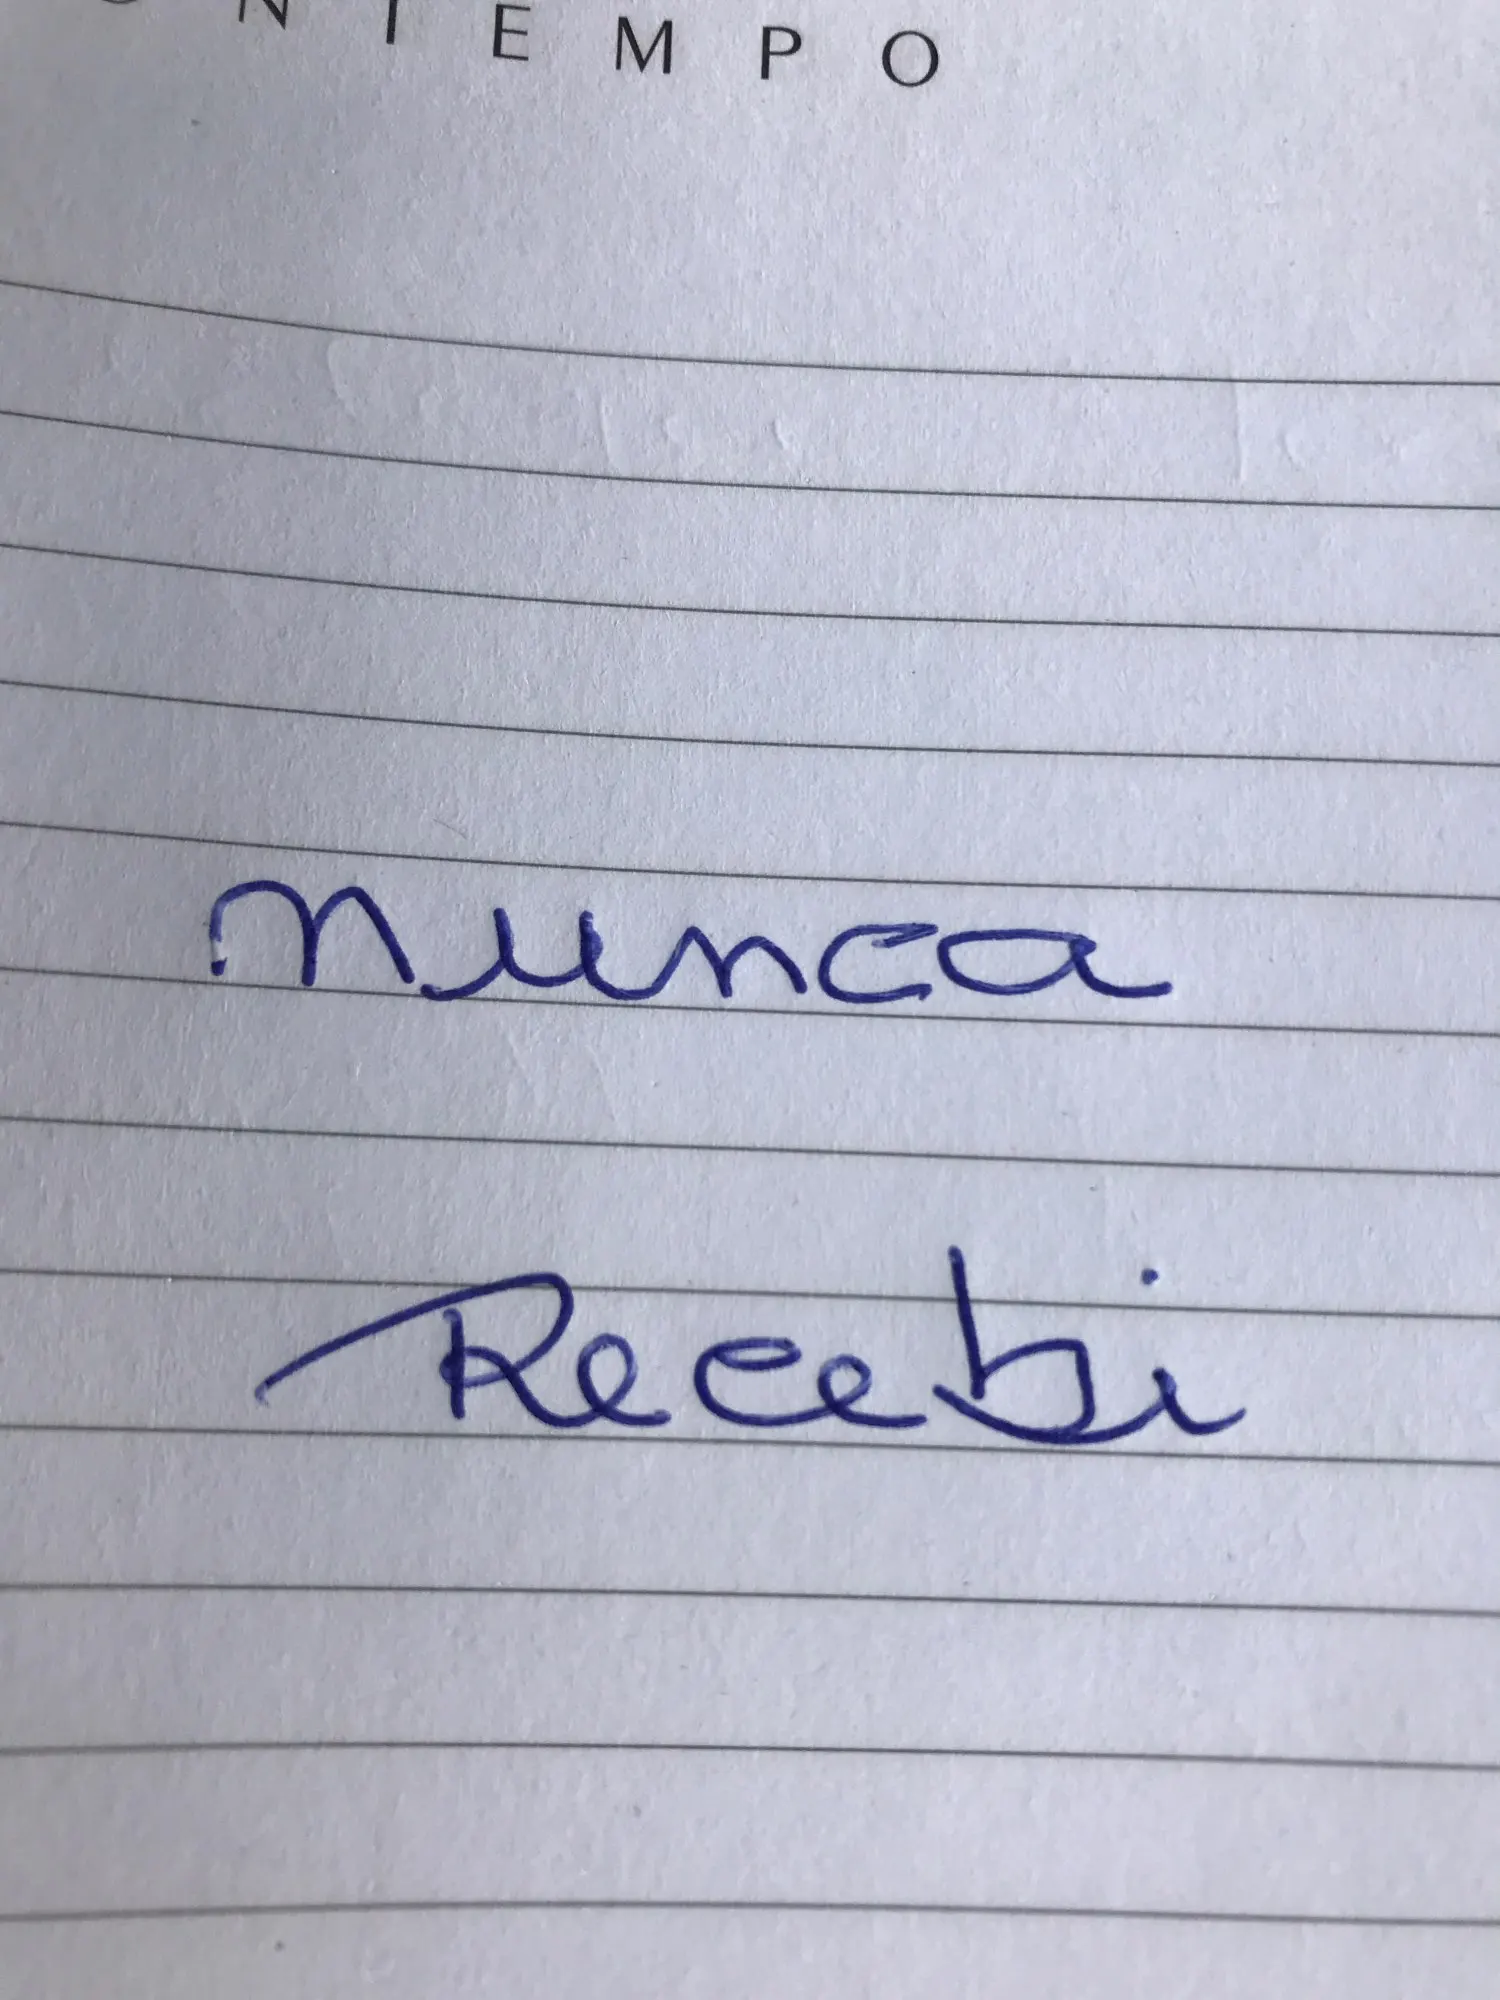 ONTEMPO
nunca
Recebi